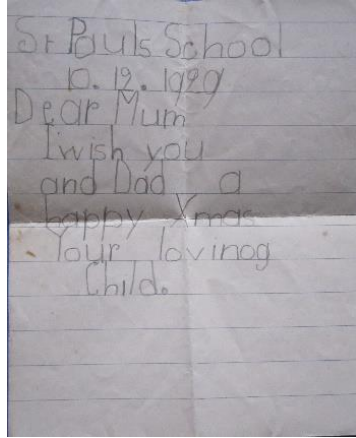 St Pauls School
10.12.1929
Dear Mum
I wish you
and Dad a
happy Xmas
Your lovinog
Child.